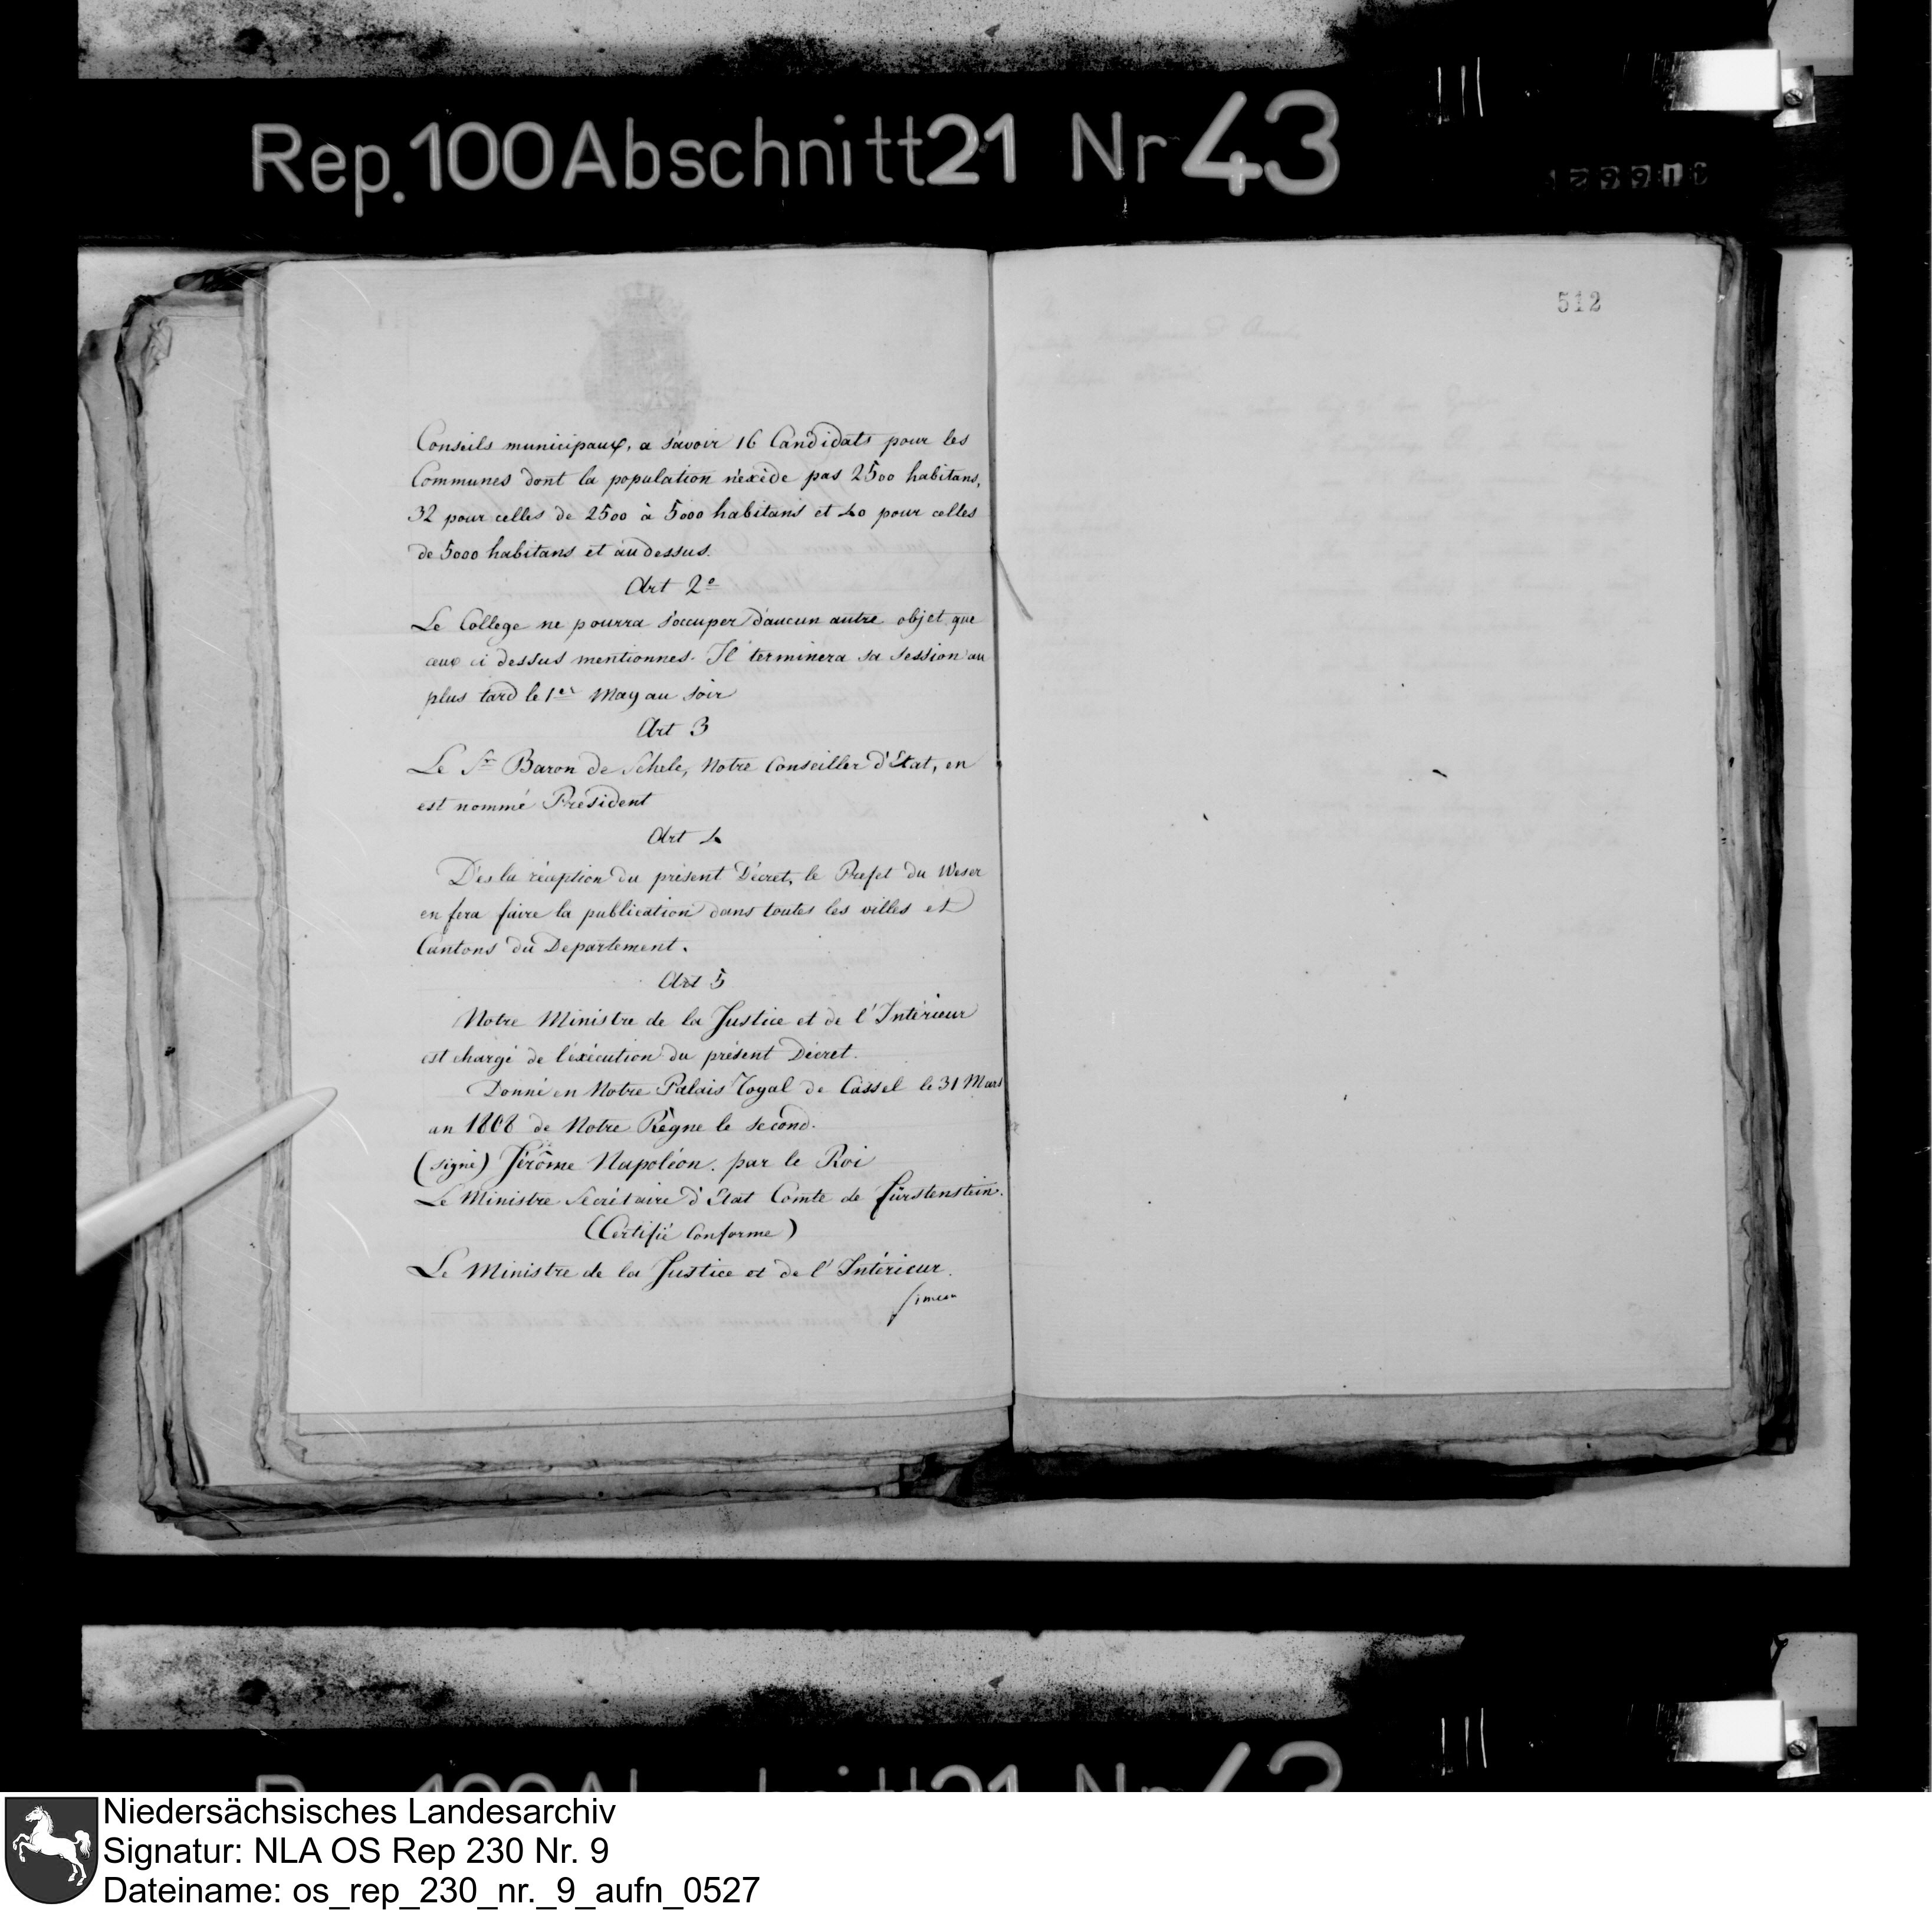 Rep. 100 Abschnitt 21 Nr 43
512
Conseils municipaux, a savoir 16 Candidats pour les
Communes dont la population n'exède pas 2500 habitans,
32 pour celles de 2500 à 5000 habitans et 40 pour celles
de 5000 habitans et au dessus.
Art 2e
Le College ne pourra s'occuper d'aucun autre objet que
ceux ci dessus mentionnes. Il terminera sa session au
plus tard le 1er May au soir
Art 3
Le Sr Baron de Schele, Notre Conseiller d'Etat, en
est nommé Président
Art 4
Dès la réception du présent Décret, le Prefet du Weser
en fera faire la publication dans toutes les villes et
Cantons du Departement.
Art 5
Notre Ministre de la Justice et de l'Intérieur
est chargé de l'exécution du présent Décret.
Donné en Notre Palais Royal de Cassel le 31 Mars
an 1808 de Notre Règne le second.
(signé) Jérôme Napoléon. par le Roi
Le Ministre Secrétaire d'Etat Comte de Fürstenstein.
(Certifié Conforme)
Le Ministre de la Justice et de l'Intérieur.
Simeon
Niedersächsisches Landesarchiv
Signatur: NLA OS Rep 230 Nr. 9
Dateiname: os_rep_230_nr._9_aufn_0527